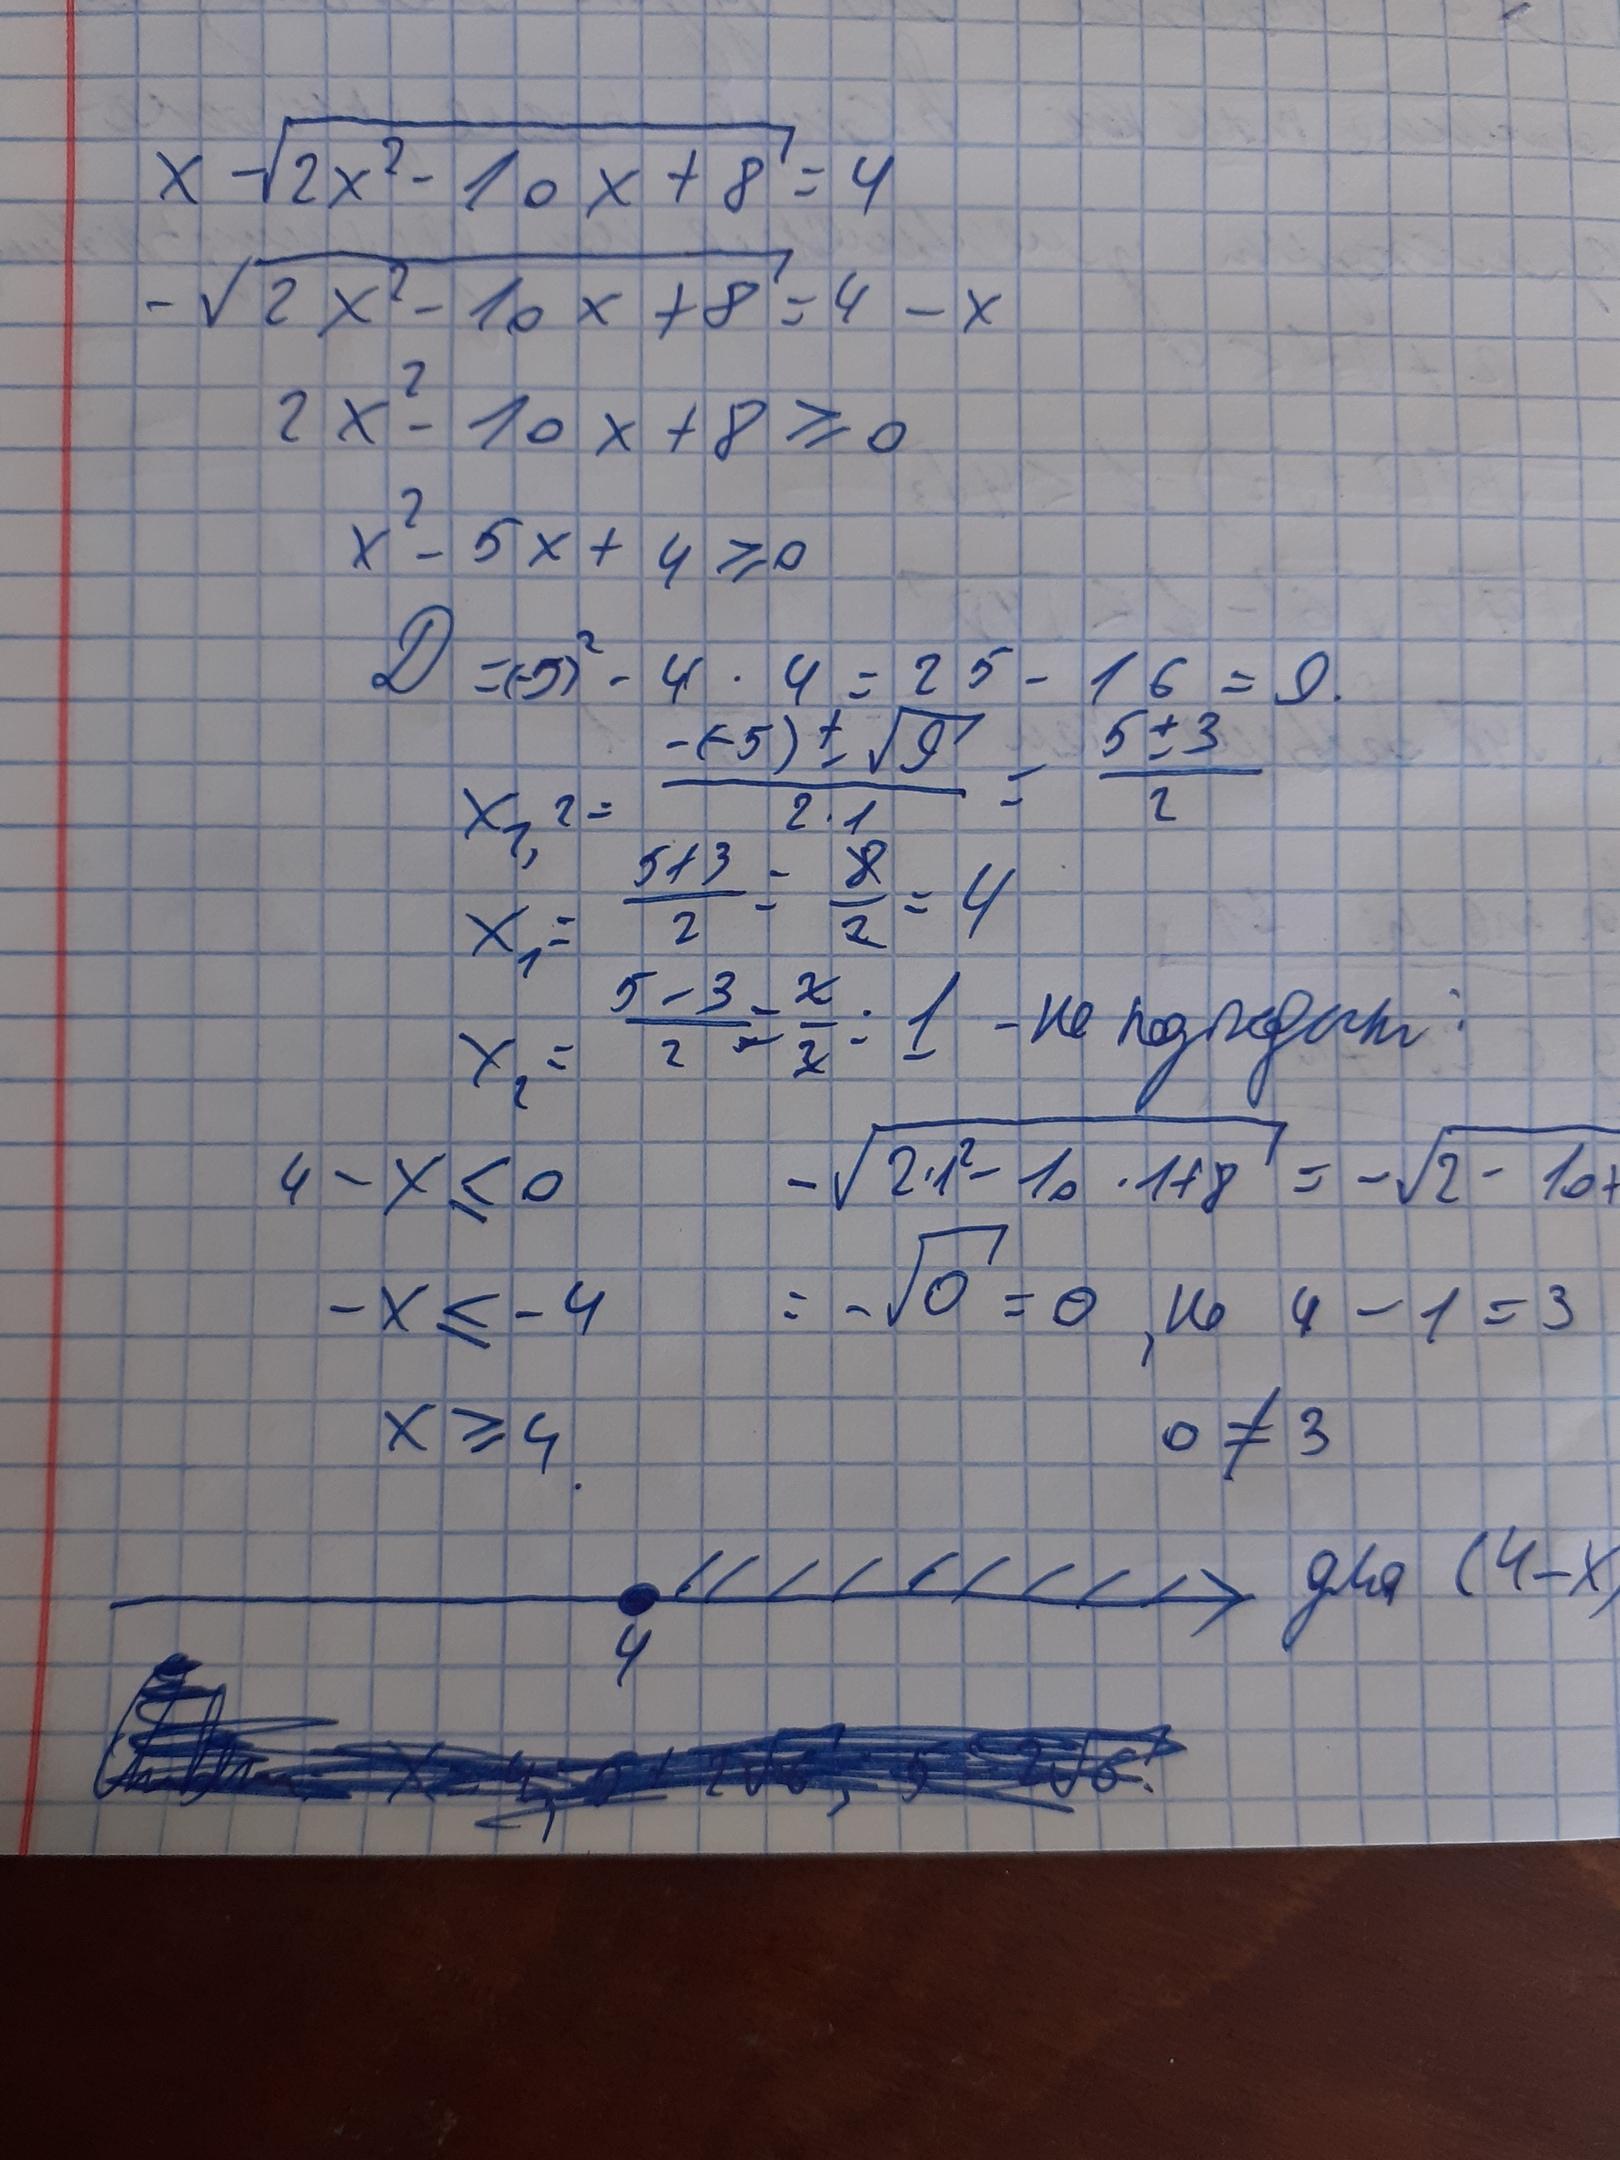 x - √(2x² - 10x + 8) = 4
- √(2x² - 10x + 8) = 4 - x
2x² - 10x + 8 ≥ 0
x² - 5x + 4 ≥ 0
D = (-5)² - 4 · 4 = 25 - 16 = 9.
x₁,₂ = (-(-5) ± √9)/(2·1) = (5 ± 3)/2
x₁ = (5+3)/2 = 8/2 = 4
x₂ = (5-3)/2 = 2/2 = 1 - не подходит:
4 - x ≤ 0 -√(2·1² - 10·1+8) = -√(2 - 10+
-x ≤ -4 = -√0 = 0, но 4 - 1 = 3
x ≥ 4. 0 ≠ 3
для (4-x)
4